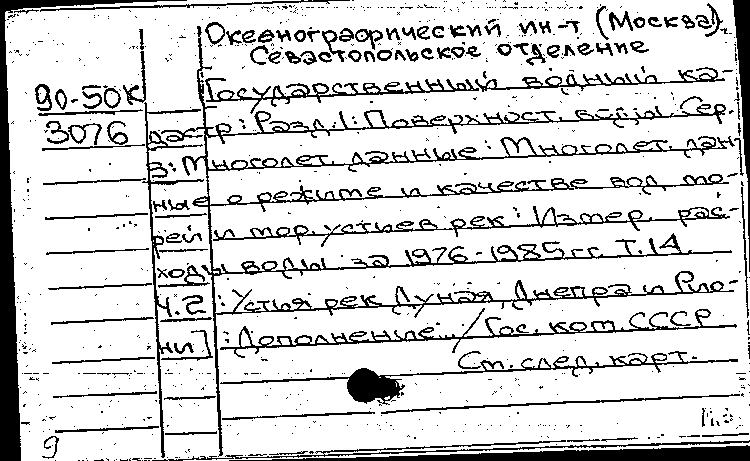 Океанографический ин-т (Москва).
Севастопольское отделение
90-50К Государственный водный ка-
3076 дастр: Разд. 1: Поверхност. воды. Сер.
3: Многолет. данные: Многолет. дан-
ные о режиме и качестве вод мо-
рей и мор. устьев рек: Измер. рас-
ходы воды за 1976-1985 гг. Т. 14.
Ч. 2: Устья рек Дуная, Днепра и Рио-
ни]: Дополнение... / Гос. ком. СССР
См. след. карт.
9